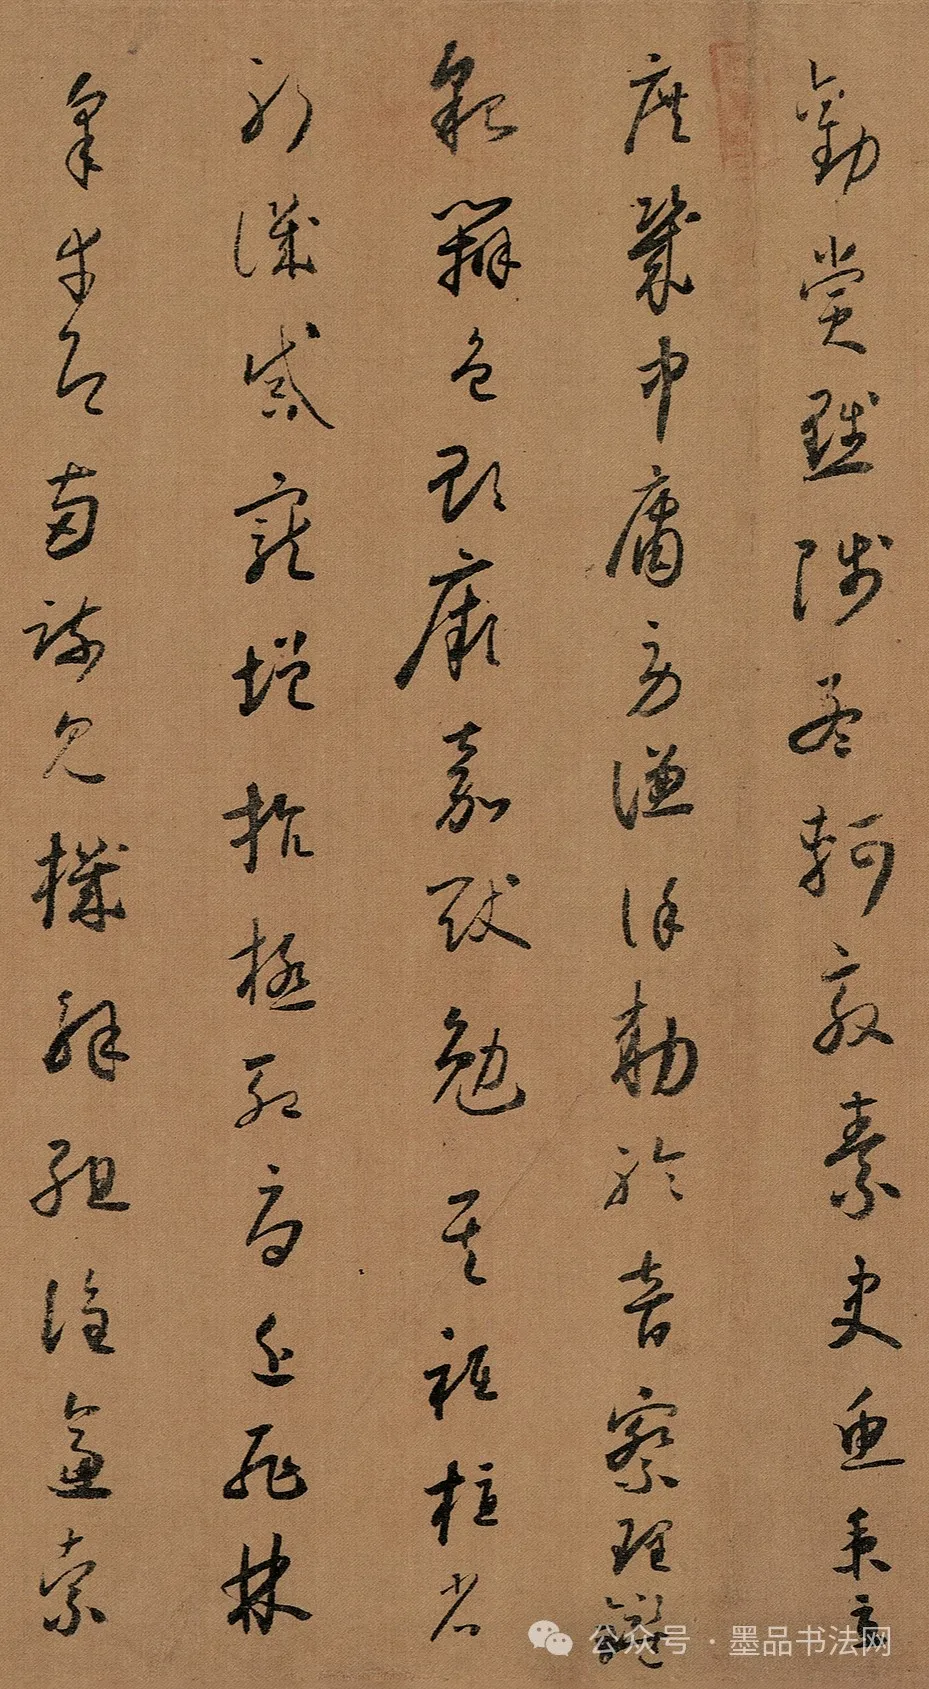 勸賞黜陟孟軻敦素史魚秉直
庶幾中庸勞謙謹勅聆音察理鑑
貌辨色貽厥嘉猷勉其祗植省
躬譏誡寵增抗極殆辱近恥林
皋幸即兩疏見機解組誰逼索
公众号·墨品书法网